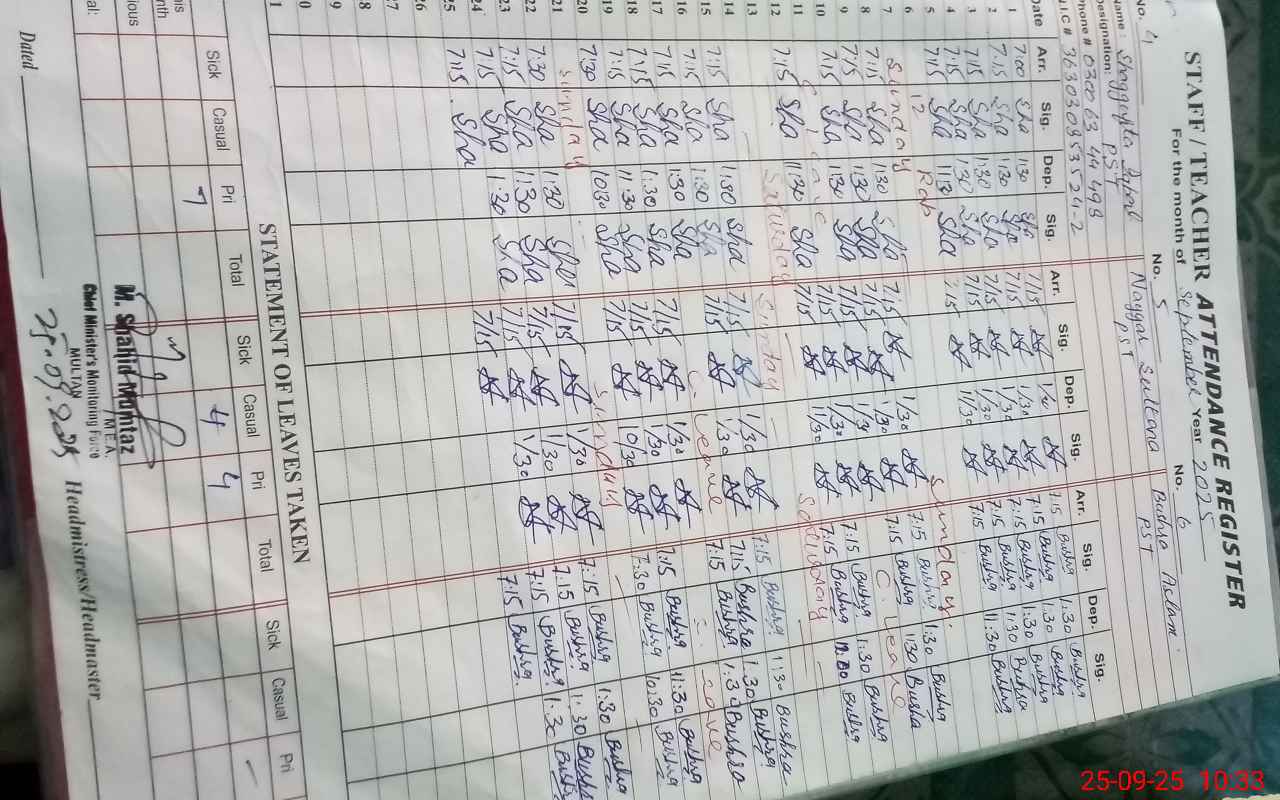 STAFF / TEACHER ATTENDANCE REGISTER
For the month of September Year 2025
No. 4
No. 5
No. 6
Name: Shaggufta
Naggar Sultana
Bushra Aslam
Designation: PST
PST
PST
Phone # 0300 63 44 498
Date Arr. Sig. Dep. Sig. Arr. Sig. Dep. Sig. Arr. Sig. Dep. Sig.
1 7:00 Sha 1:30 Sha 7/15 1/30 7:15 Bushra 1:30 Bushra
2 7:15 Sha 1:30 Sha 7/15 1/30 7:15 Bushra 1:30 Bushra
3 7:15 Sha 1:30 Sha 7/15 1/30 7:15 Bushra 1:30 Bushra
4 7:15 Sha 1:30 Sha 7/15 11/30 7:15 Bushra 11:30 Bushra
5 7:15 Sha 11:30 Sha
6 12 Rab
7 Sunday Sunday
8 7:15 Sha 1:30 Sha 7:15 1/30 7:15 Bushra 1:30 Bushra
9 7/15 Sha 1:30 Sha 7/15 1/30 7:15 Bushra 1:30 Bushra
10 7:15 Sha 1:30 Sha 7/15 1/30 C. Leave
11 C. Leave 7/15 11/30 7:15 Bushra 1:30 Bushra
12 7:15 Sha 11:30 Sha 7/15 7:15 Bushra Bushra
13 Saturday Saturday
14 Sunday
15 7:15 Sha 1:30 Sha 7/15 1/30 7:15 Bushra 1:30 Bushra
16 7:15 Sha 1:30 Sha 7/15 1/30 7:15 Bushra 1:30 Bushra
17 7:15 Sha 1:30 Sha C. Leave 7:15 Bushra 1:30 Bushra
18 7:15 Sha 1:30 Sha 7/15 1/30 C. Leave
19 7:15 Sha 11:30 Sha 7/15 1/30 7:15 Bushra 11:30 Bushra
20 7:30 Sha 10:30 Sha 7/15 10/30 7:30 Bushra 10:30 Bushra
21 Sunday Sunday
22 7:30 Sha 1:30 Sha 7/15 1/30 7:15 Bushra 1:30 Bushra
23 7:15 Sha 1:30 Sha 7/15 1/30 7:15 Bushra 1:30 Bushra
24 7:15 Sha 1:30 Sha 7/15 1/30 7:15 Bushra 1:30 Bushra
25 7:15 Sha 7/15 7:15 Bushra
26
27
28
STATEMENT OF LEAVES TAKEN
Sick Casual Pri Total Sick Casual Pri Total Sick Casual Pri
7 4 4 -
M. Shahid Mumtaz
M.E.A.
Chief Minister's Monitoring Force
MULTAN
25.09.2025
Dated
Headmistress/Headmaster
25-09-25 10:33